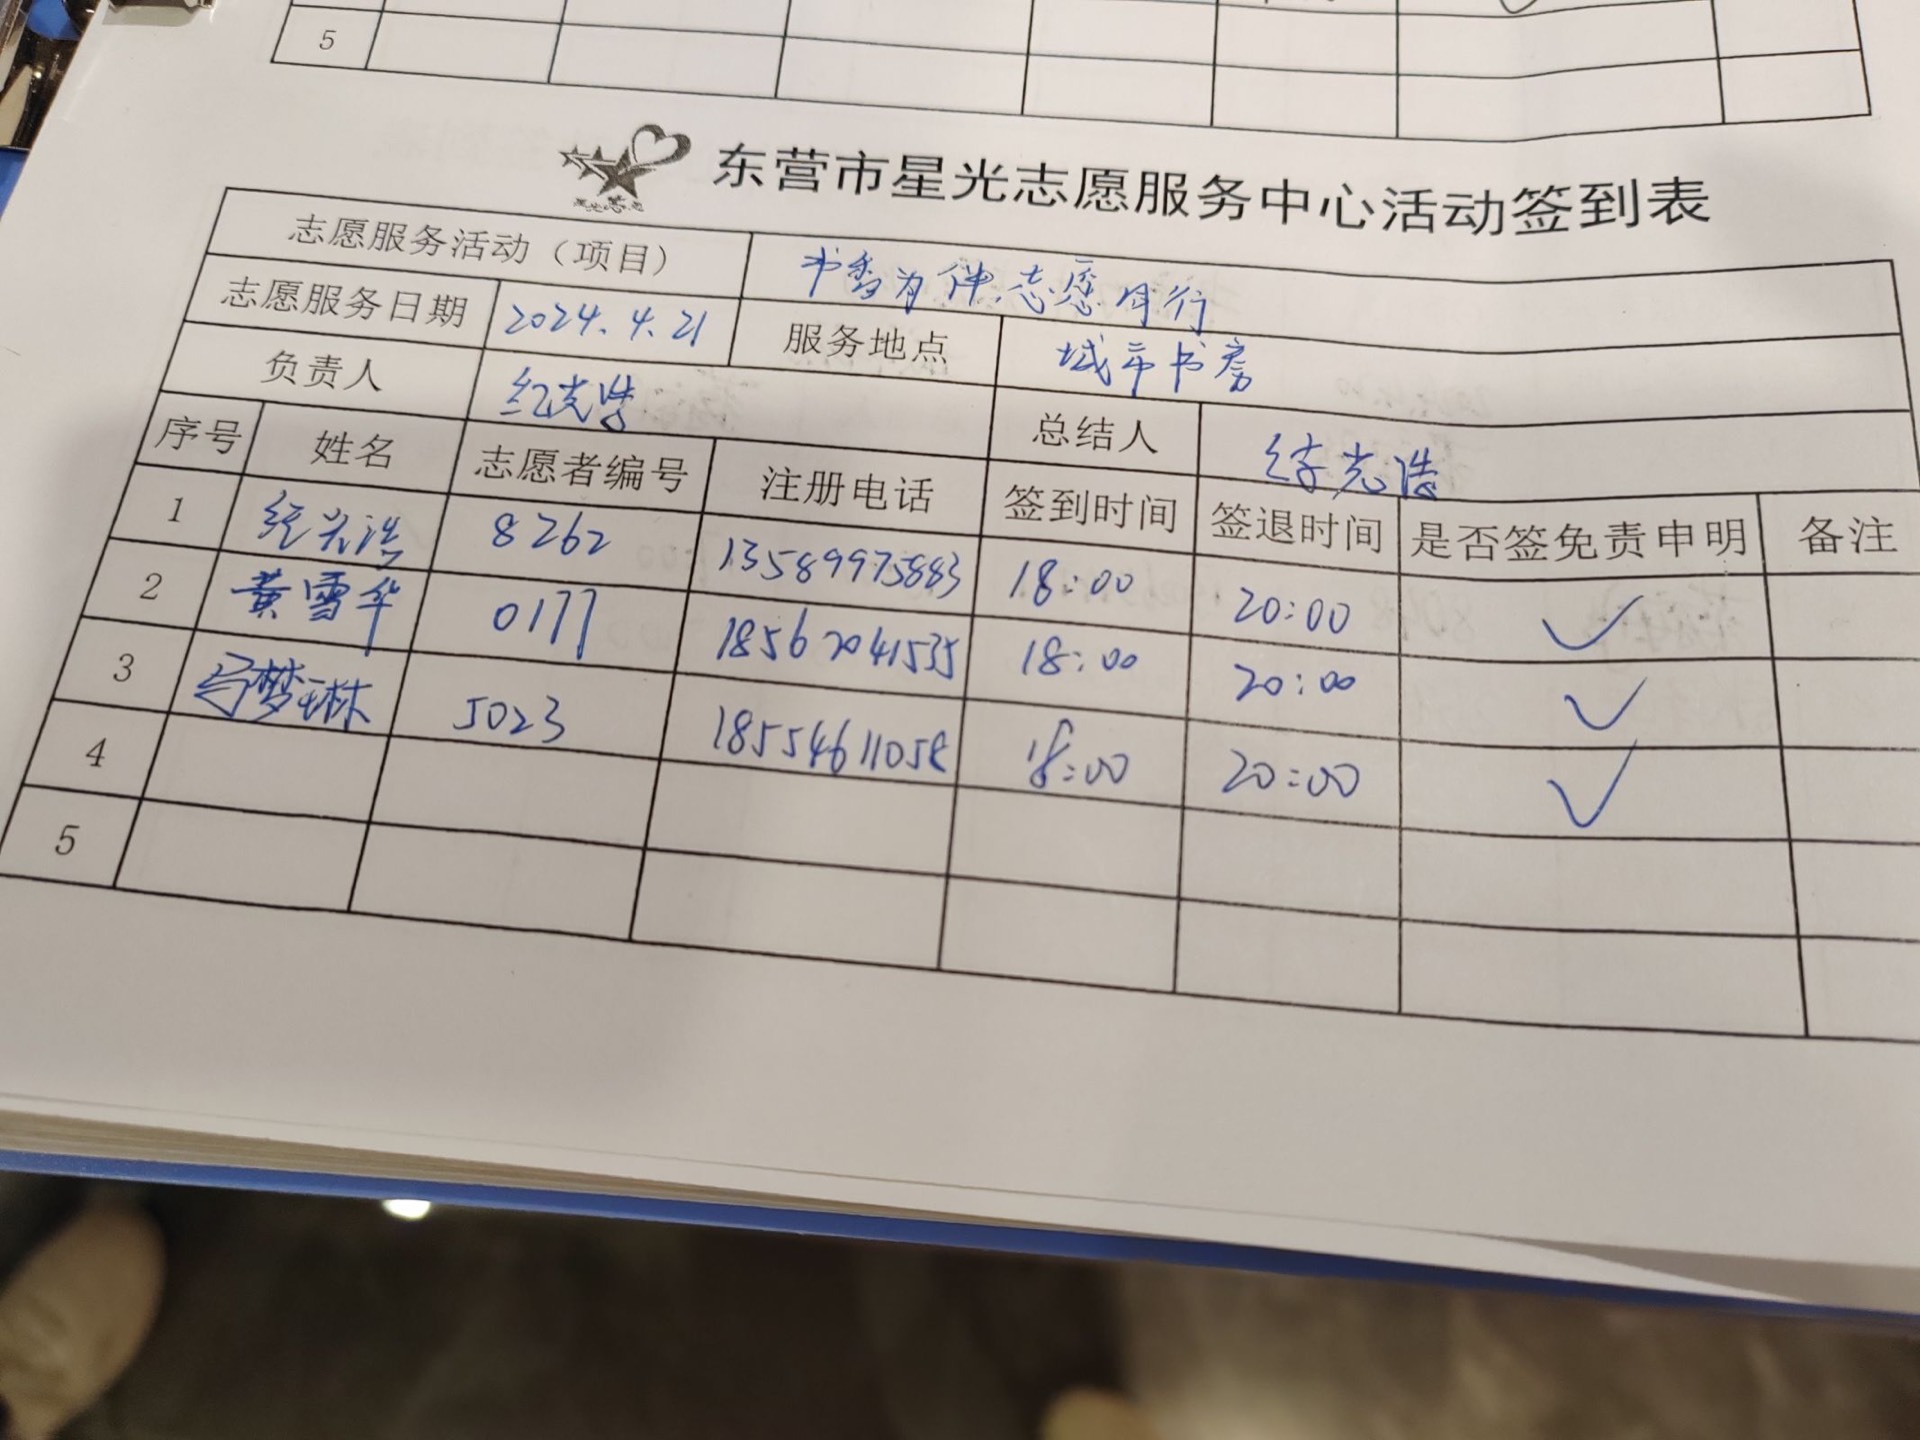 5
东营市星光志愿服务中心活动签到表
志愿服务活动（项目） 书香为伴，志愿同行
志愿服务日期 2024.4.21 服务地点 城市书房
负责人 总结人
序号 姓名 志愿者编号 注册电话 签到时间 签退时间 是否签免责申明 备注
1 8262 13589975883 18:00 20:00 ✓
2 黄雪华 0177 18562041535 18:00 20:00 ✓
3 马梦琳 5023 18554611058 18:00 20:00 ✓
4
5